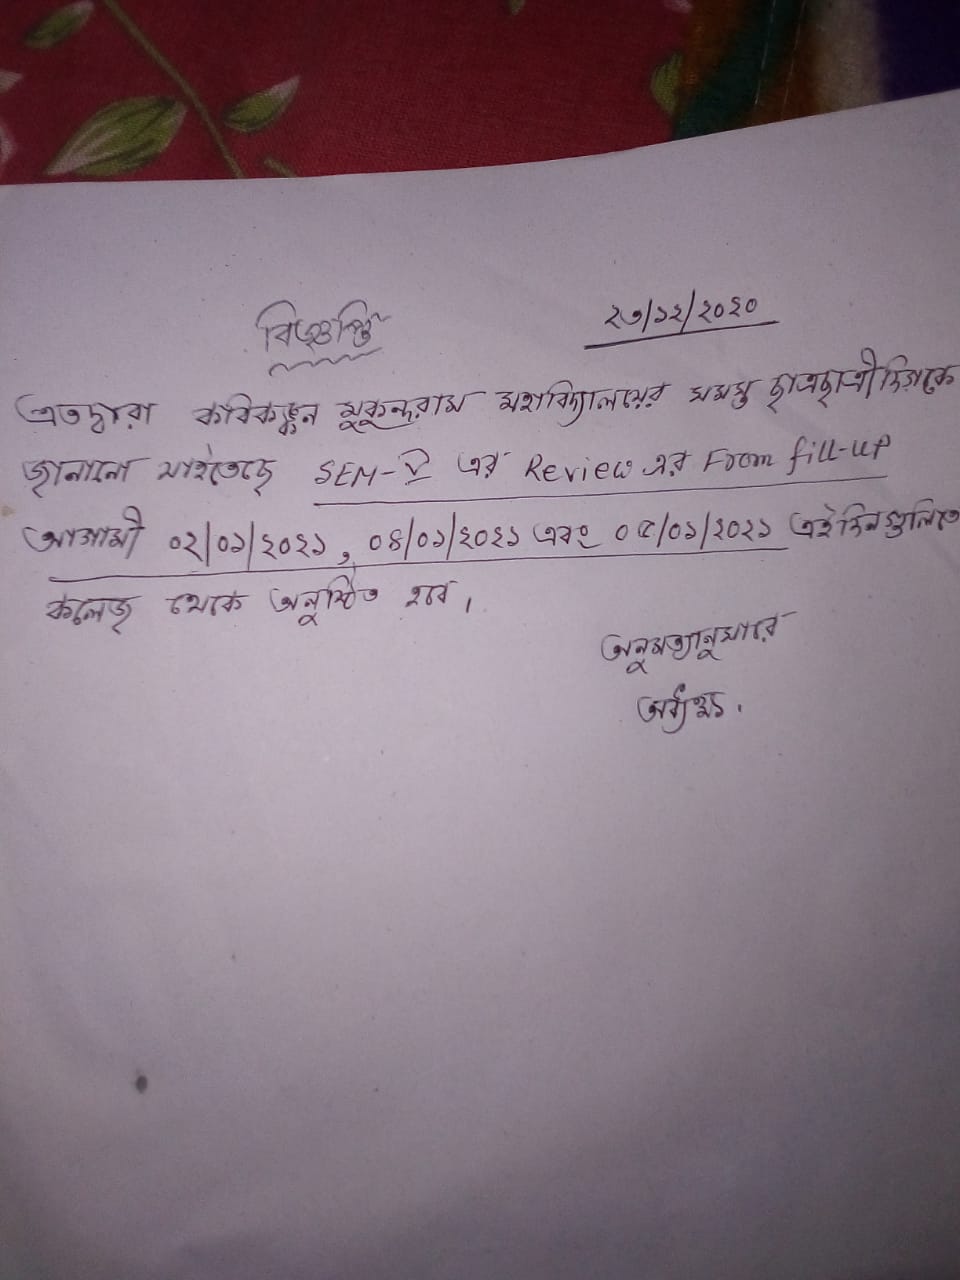 বিজ্ঞপ্তি
২৩/১২/২০২০
এতদ্বারা কবিকঙ্কন মুকুন্দরাম মহাবিদ্যালয়ের সমস্ত ছাত্রছাত্রীদিগকে
জানানো যাইতেছে SEM-V এর Review এর From fill-up
আগামী ০২/০১/২০২১, ০৪/০১/২০২১ এবং ০৫/০১/২০২১ এই দিনগুলিতে
কলেজ থেকে অনুষ্ঠিত হবে।
অনুমত্যানুসারে
অধ্যক্ষ.